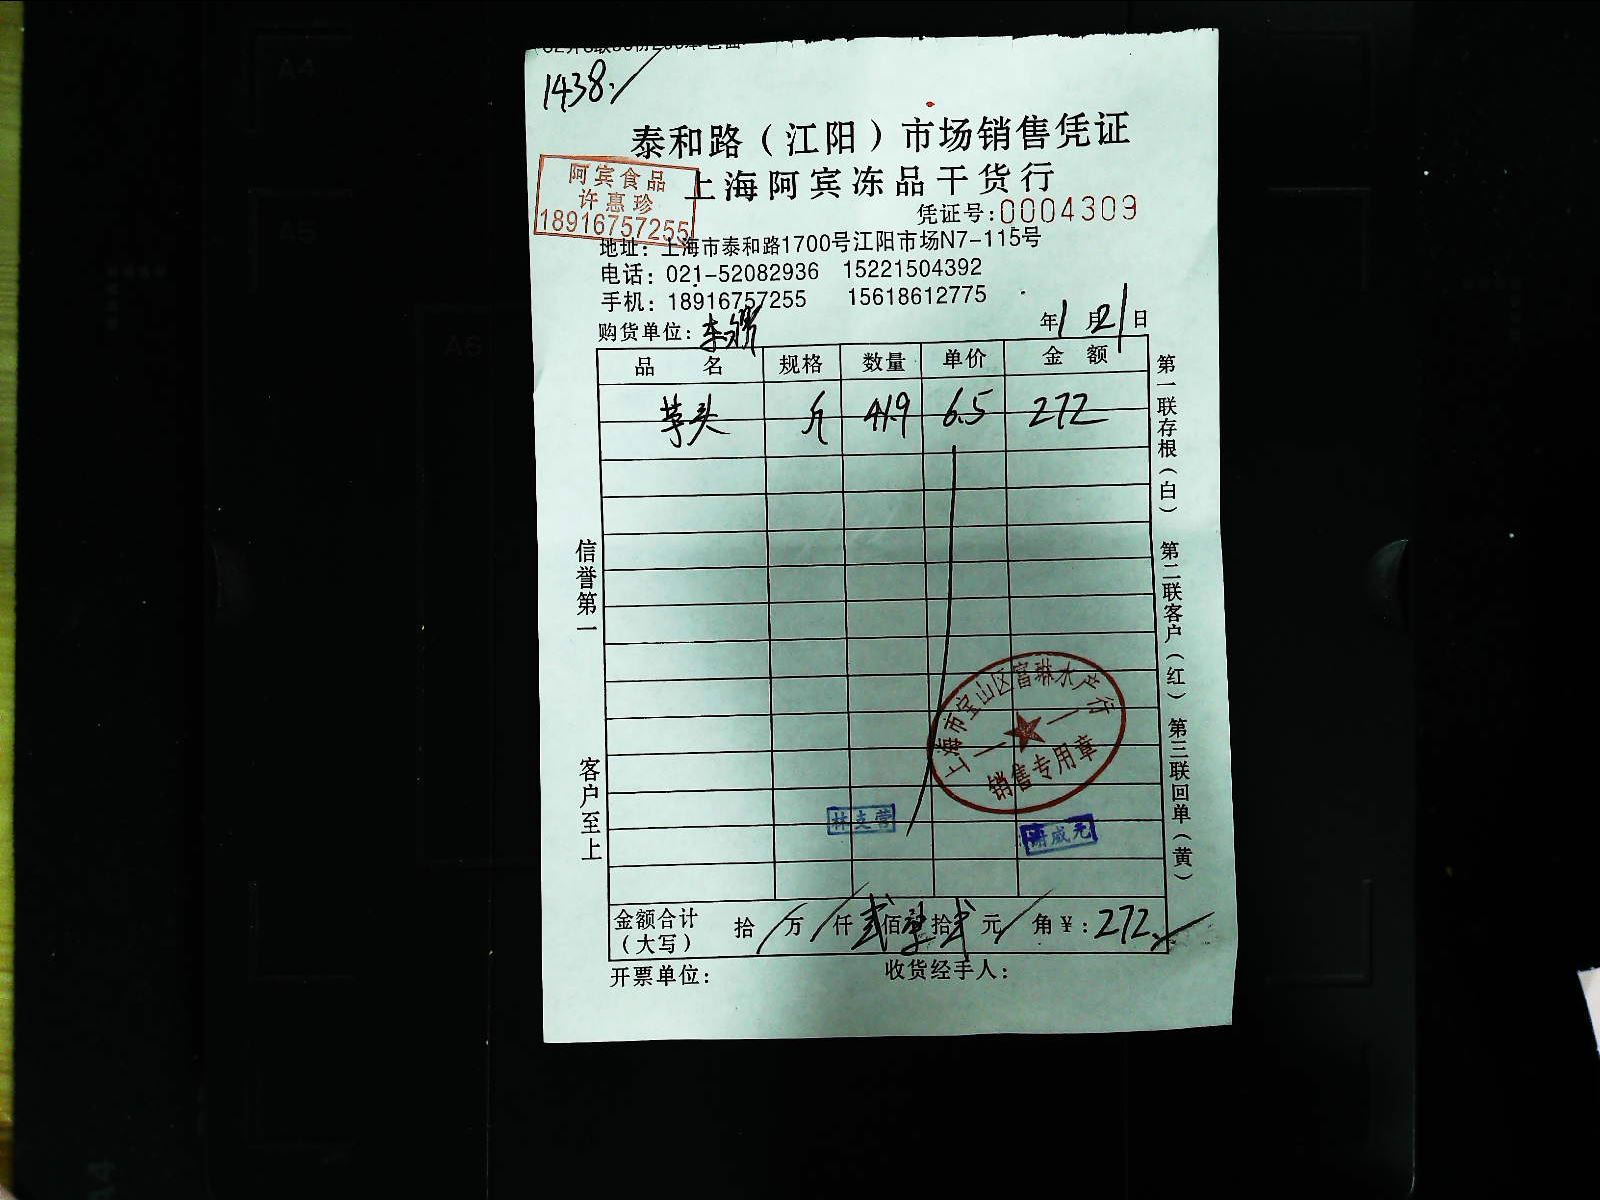 1438.
泰和路（江阳）市场销售凭证
上海阿宾冻品干货行
阿宾食品
许惠珍
18916757255
凭证号:0004309
地址：上海市泰和路1700号江阳市场N7-115号
电话：021-52082936 15221504392
手机：18916757255 15618612775
购货单位：
年1月21日
品名 规格 数量 单价 金额
芋头 斤 41.9 6.5 272
第一联存根（白） 第二联客户（红） 第三联回单（黄）
信誉第一
客户至上
上海市宝山区富琳水产行
销售专用章
林支营
谢威元
金额合计（大写） 拾/万/仟贰佰柒拾贰元/角¥：272.
开票单位： 收货经手人：